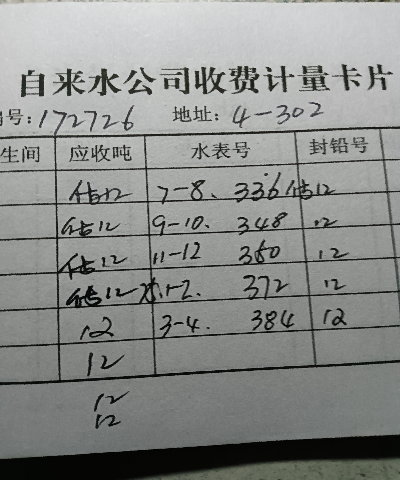 自来水公司收费计量卡片
编号:172726 地址:4-302
生间 应收吨 水表号 封铅号
估12 7-8. 336 估12
估12 9-10. 348 12
估12 11-12 360 12
估12 1-2. 372 12
12 3-4. 384 12
12
12
12